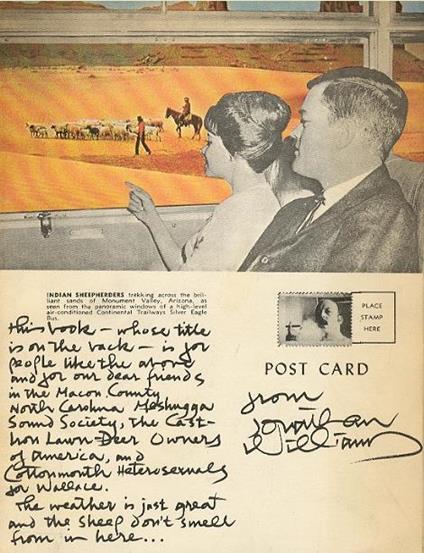 INDIAN SHEEPHERDERS trekking across the bril-
liant sands of Monument Valley, Arizona, as
seen from the panoramic windows of a high-level
air-conditioned Continental Trailways Silver Eagle
Bus.
This book – whose title
is on the back – is for
people like the above
and for our dear friends
in the Macon County
North Carolina Meshugga
Sound Society, the Cast-
Iron Lawn-Deer Owners
of America, and
Cottonmouth Heterosexuals
for Wallace.
The weather is just great
and the sheep don't smell
from in here...
PLACE
STAMP
HERE
POST CARD
from
Jonathan
Williams